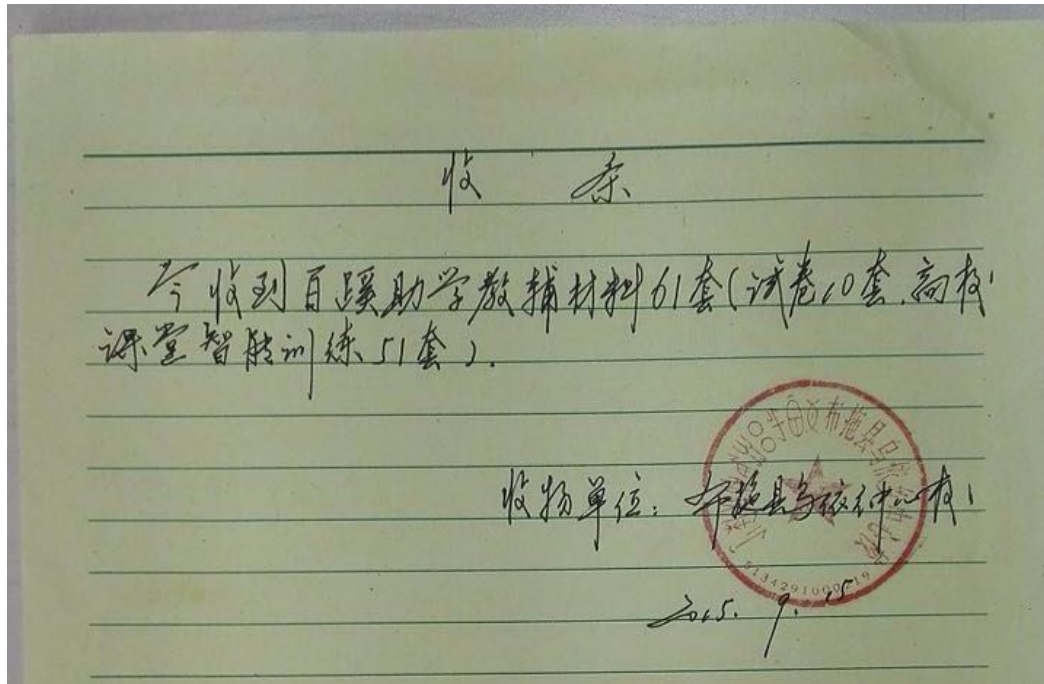 收 条
今收到百蹊助学教辅材料61套(试卷10套.高校
课堂智能训练51套).
收物单位:布拖县乌依乡中心校
布拖县乌依乡中心校
2015. 9. 15